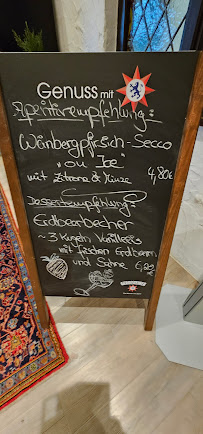 Genuss mit
Aperitifempfehlung:
Weinbergpfirsich-Secco
"on Ice"
mit Zitrone & Minze 4,80€
Dessertempfehlung:
Erdbeerbecher
~3 Kugeln Vanilleeis
mit frischen Erdbeeren
und Sahne 6,20